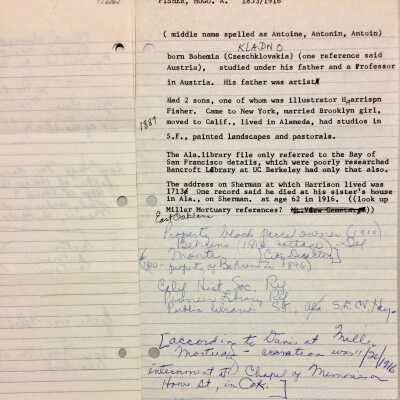 FISHER, HUGO, A. 1853/1916
( middle name spelled as Antoine, Antonin, Antoin)
KLADNO
born Bohemia (Czeschklovakia) (one reference said
Austria), studied under his father and a Professor
in Austria. His father was artist
Had 2 sons, one of whom was illustrator Harrispn
Fisher. Came to New York, married Brooklyn girl,
1887
moved to Calif., lived in Alameda, had studios in
S.F., painted landscapes and pastorals.
The Ala.library file only referred to the Bay of
San Francisco details, which were poorly researched
Bancroft Library at UC Berkeley had only that also.
The address on Sherman at which Harrison lived was
1713. One record said he died at his sister's house
in Ala., on Sherman, at age 62 in 1916. ((look up
Miller Mortuary references? Mt. View Cemetary))
Property block parcel owner (1910)
Behrens (1910, cottage)
(City Directory)
(100 - property of Behrens in 1896)
Calif Hist. Soc. Ry
Pioneers Library
Public Libraries S.F., Ala
[according to Dane at Miller
Mortuary - cremation was 11/20/1916
internment at Chapel of Memories on
Howe St, in Oak.]